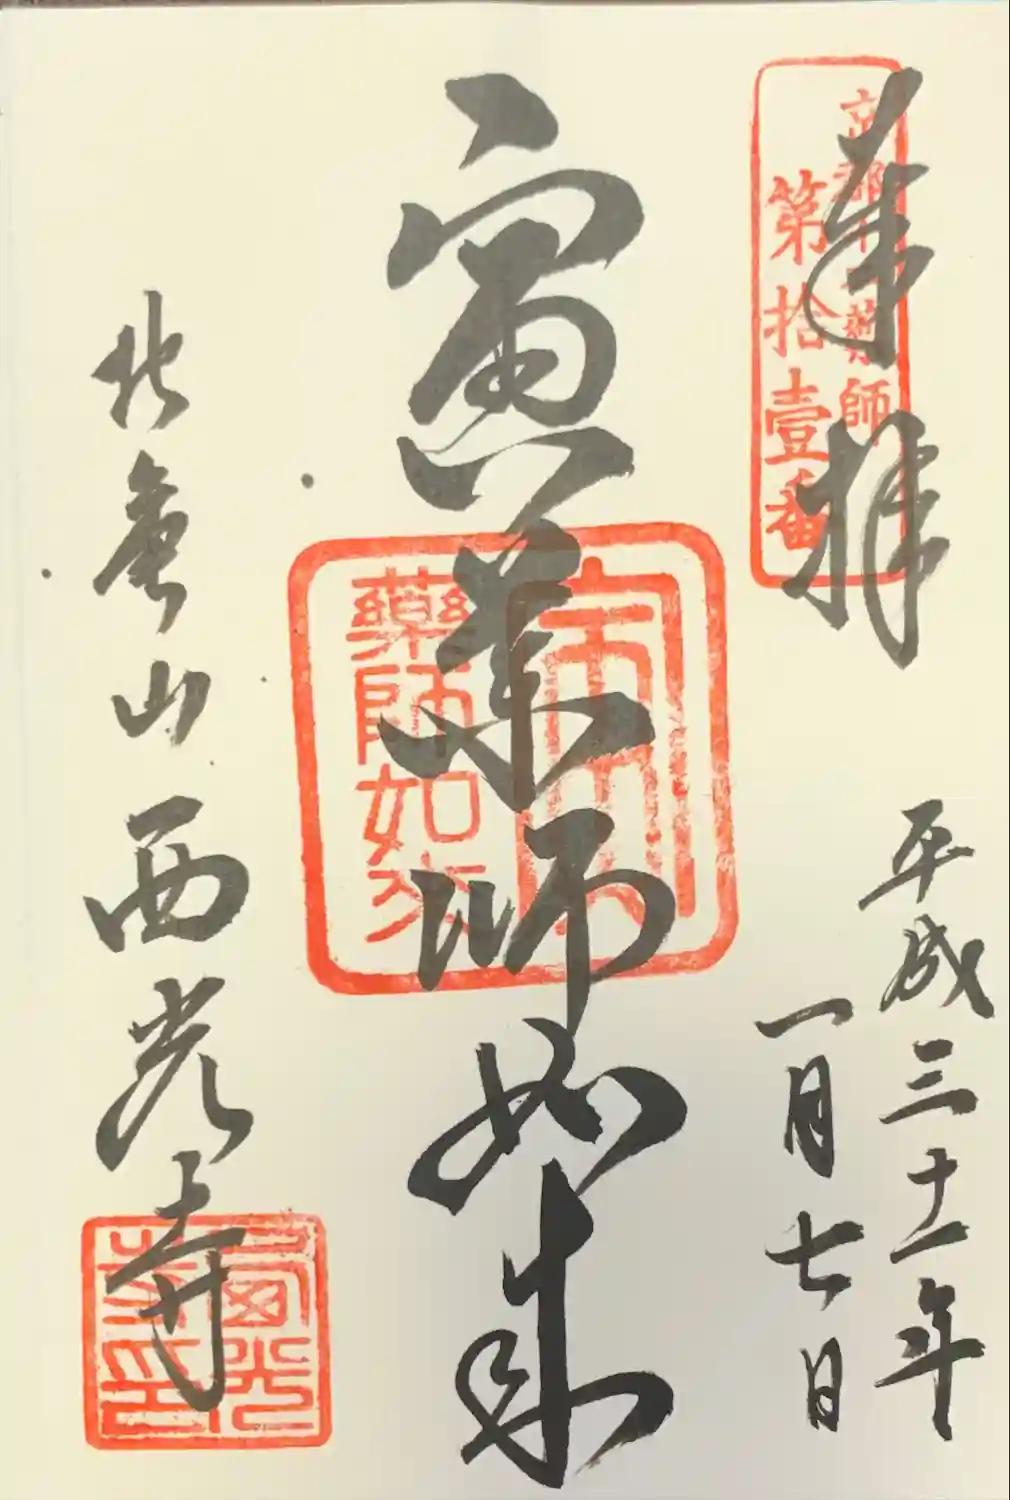 京都十二薬師
第拾壹番
奉拝
平成三十一年
一月七日
寅薬師如来
藥師如来
北亀山西光寺
西光寺印